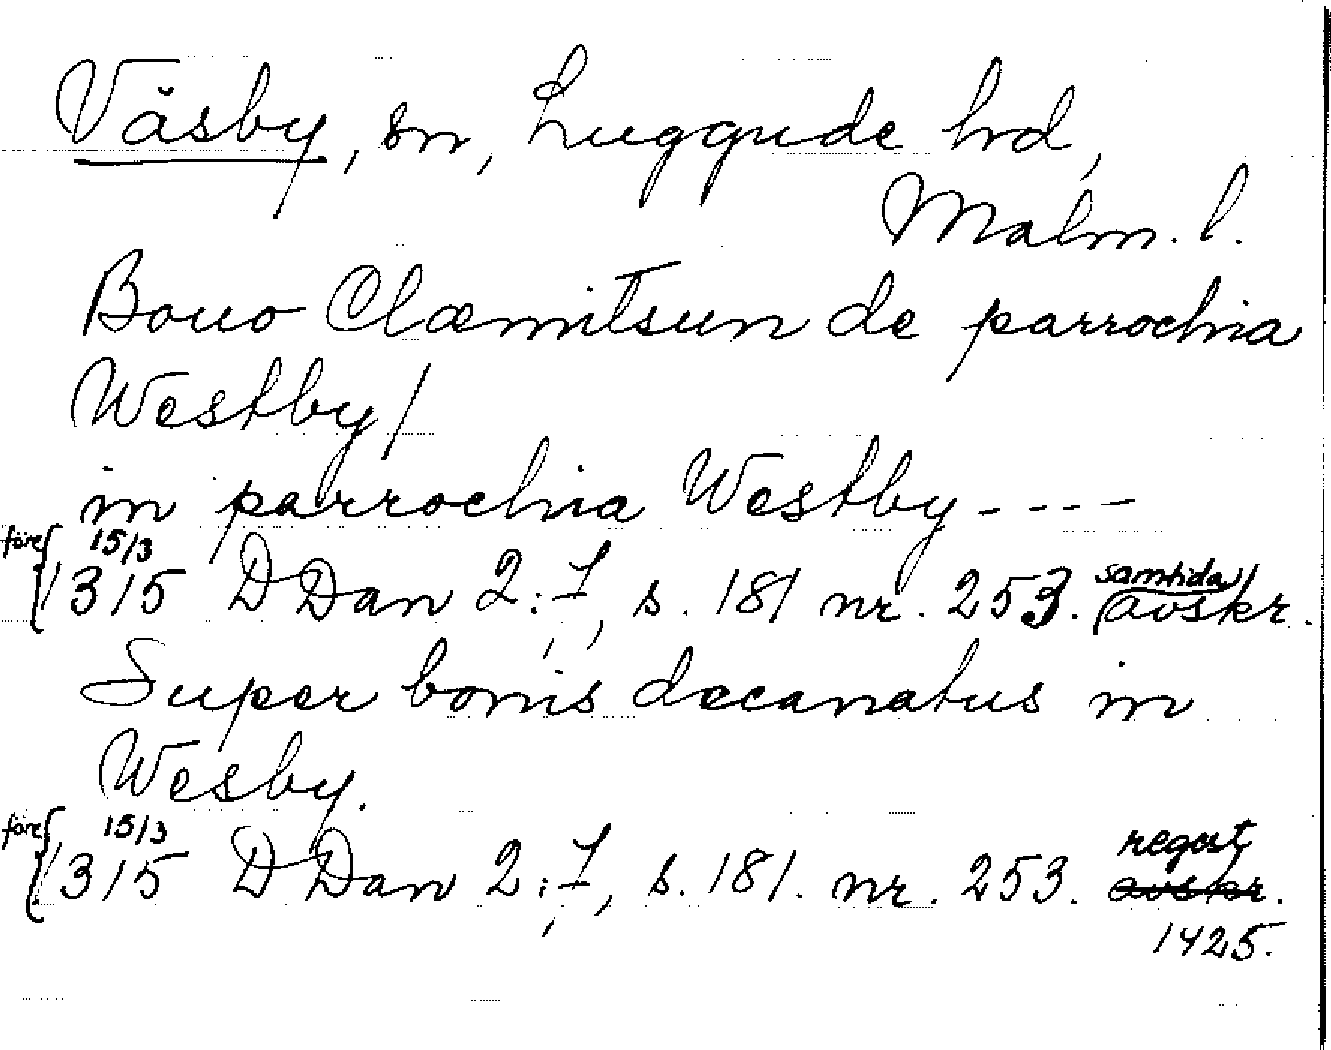 Väsby, sn, Luggude hd,
Malm. l.
Bouo Clæmitsun de parrochia
Westby/
in parrochia Westby ----
före 15/3
1315 DDan 2:7, s. 181 nr. 253. samtida/ avskr.
Super bonis decanatus in
Wesby.
före 15/3 regest
1315 DDan 2:7, s. 181. nr. 253. avskr.
1425.